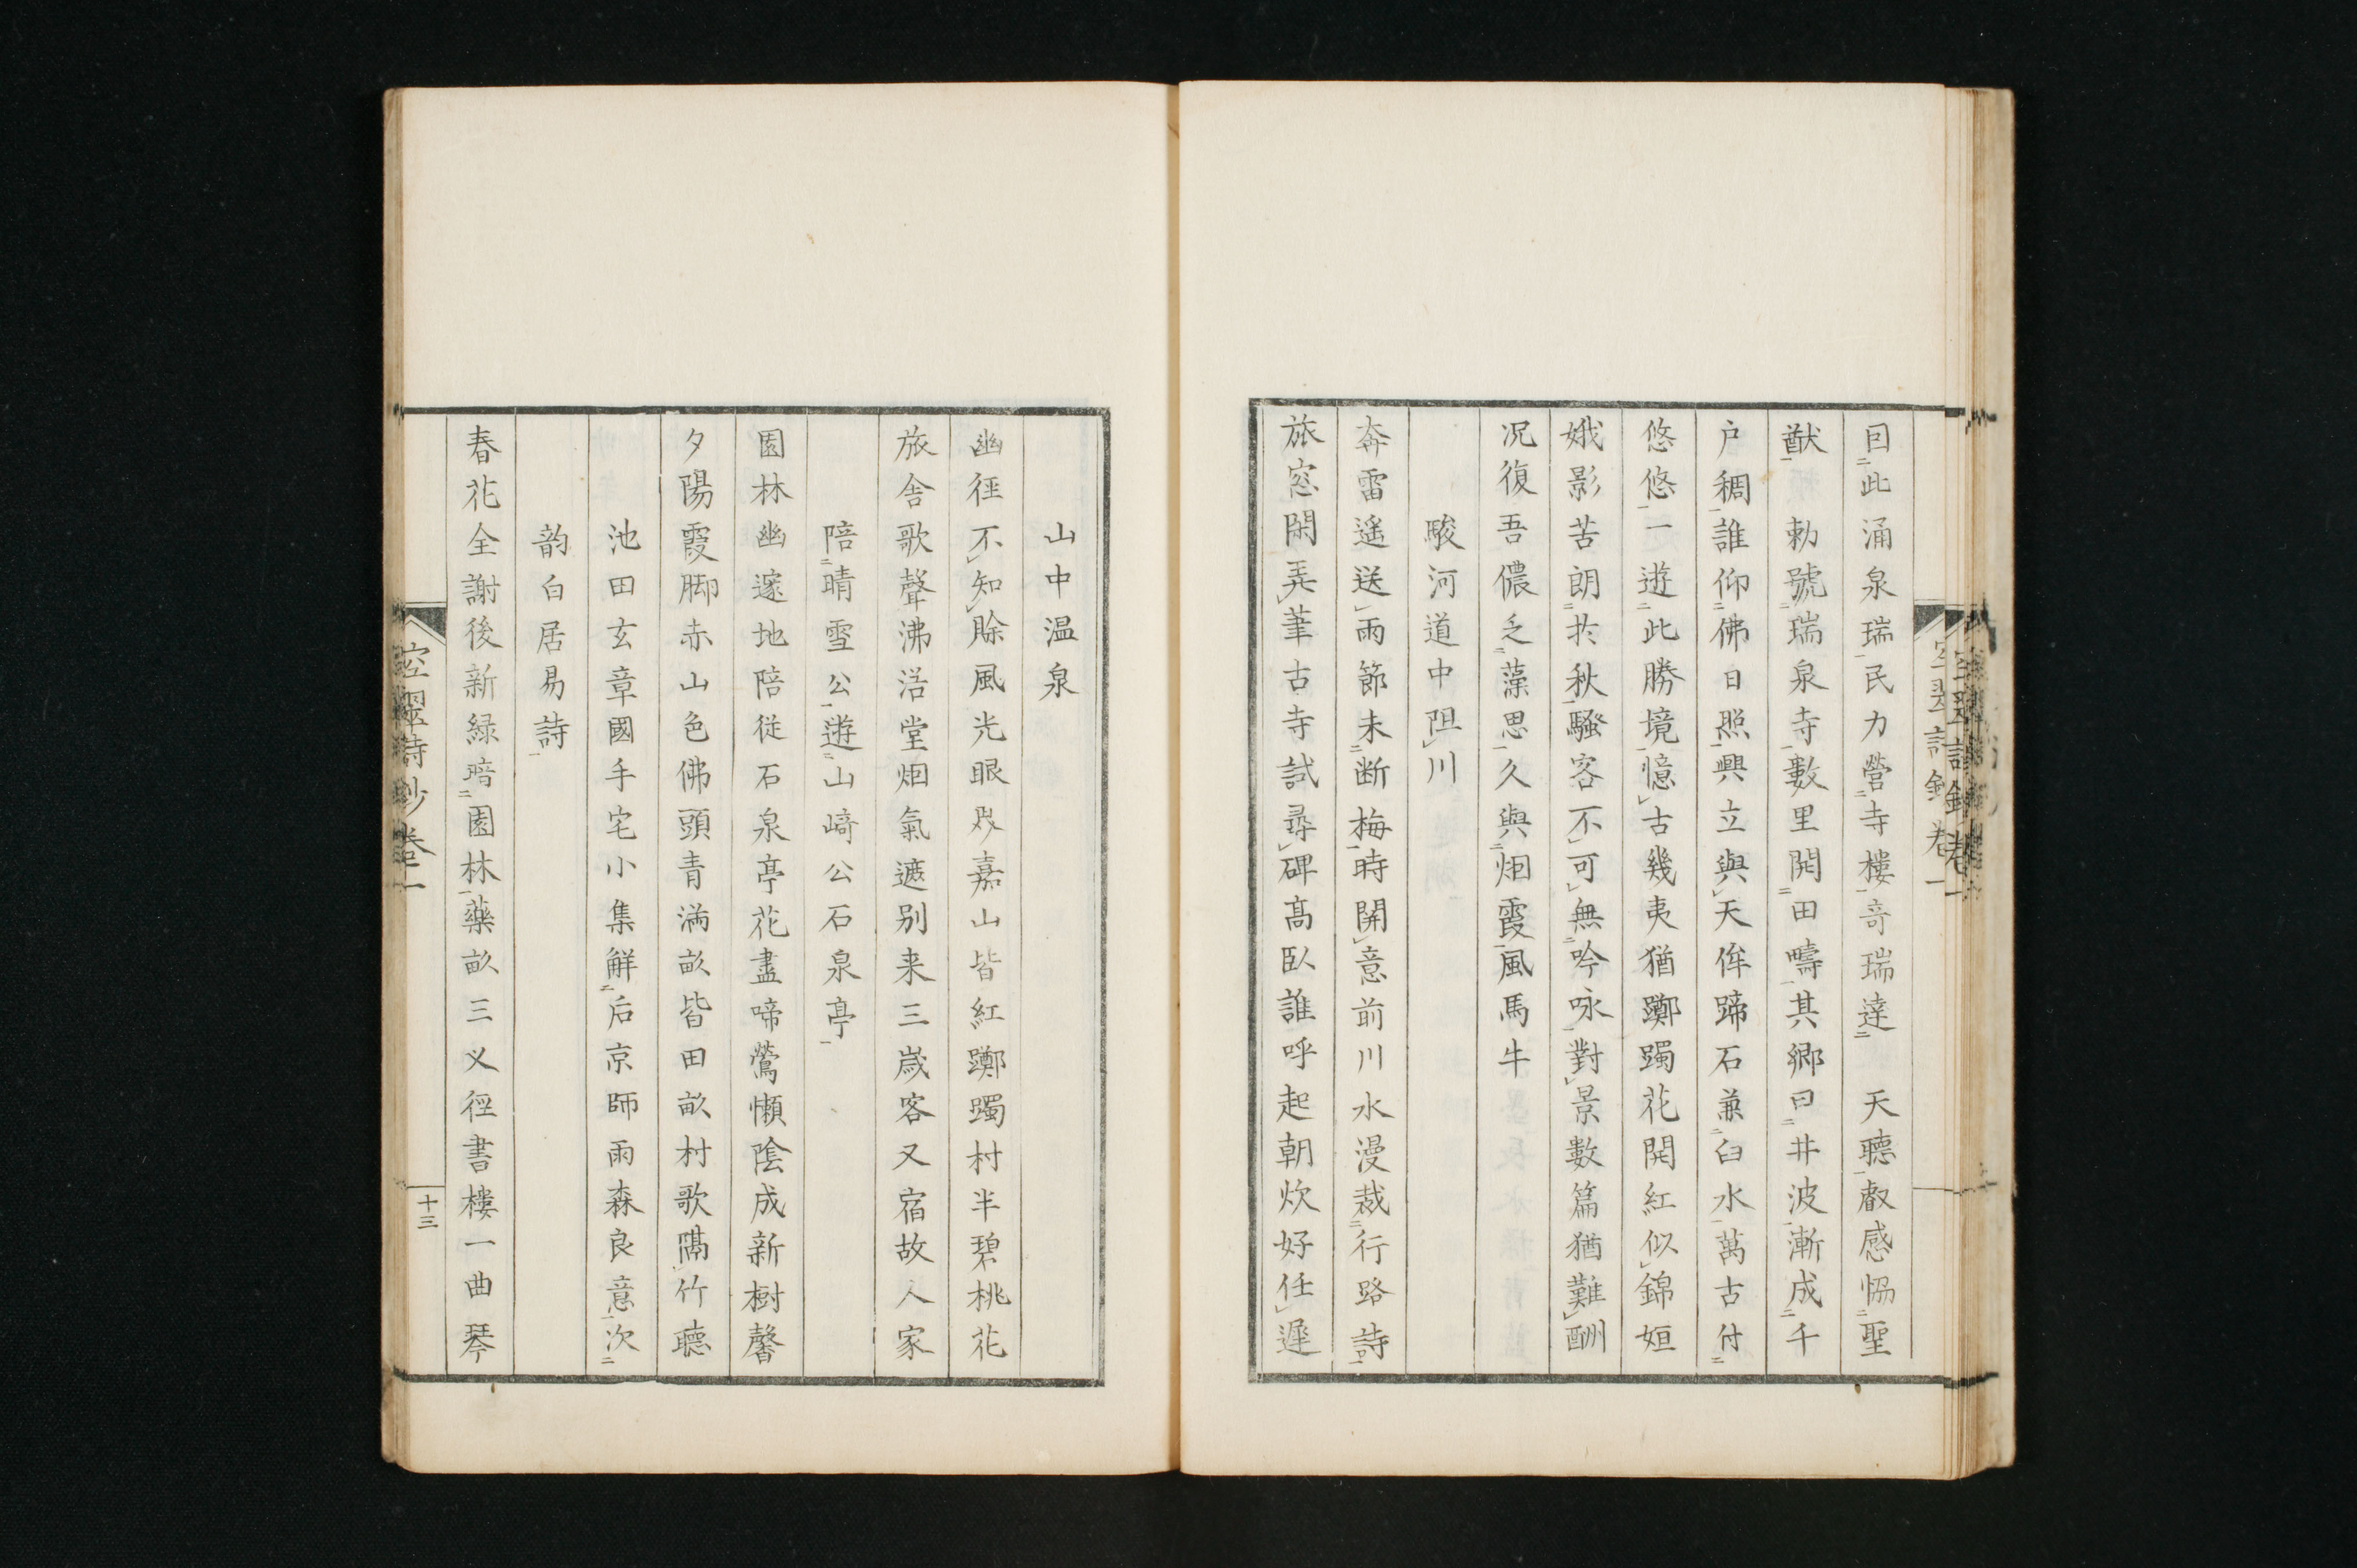 因此涌泉瑞民力營寺樓奇瑞達　天聽叡感協聖
猷　勅號瑞泉寺數里開田疇其鄉曰井波漸成千
户稠誰仰佛日照興立與天侔蹄石兼臼水萬古付
悠悠一遊此勝境憶古幾夷猶躑躅花開紅似錦姮
娥影苦朗於秋騷客不可無吟咏對景數篇猶難酬
况復吾儂乏藻思久與烟霞風馬牛
駿河道中阻川
奔雷遙送雨節未断梅時開意前川水漫裁行路詩
旅窓閑弄筆古寺試尋碑高臥誰呼起朝炊好任遲
山中温泉
幽徑不知賒風光眼毎嘉山皆紅躑躅村半碧桃花
旅舎歌聲沸浴堂烟氣遮别来三歳客又宿故人家
陪晴雪公遊山崎公石泉亭
園林幽邃地陪従石泉亭花盡啼鶯懶陰成新樹馨
夕陽霞脚赤山色佛頭青満畝皆田畝村歌隔竹聴
池田玄章國手宅小集觧后京師雨森良意次
韵白居易詩
春花全謝後新緑暗園林藥畝三义徑書樓一曲琴
空翠詩鈔卷一
十三
空翠詩鈔卷一